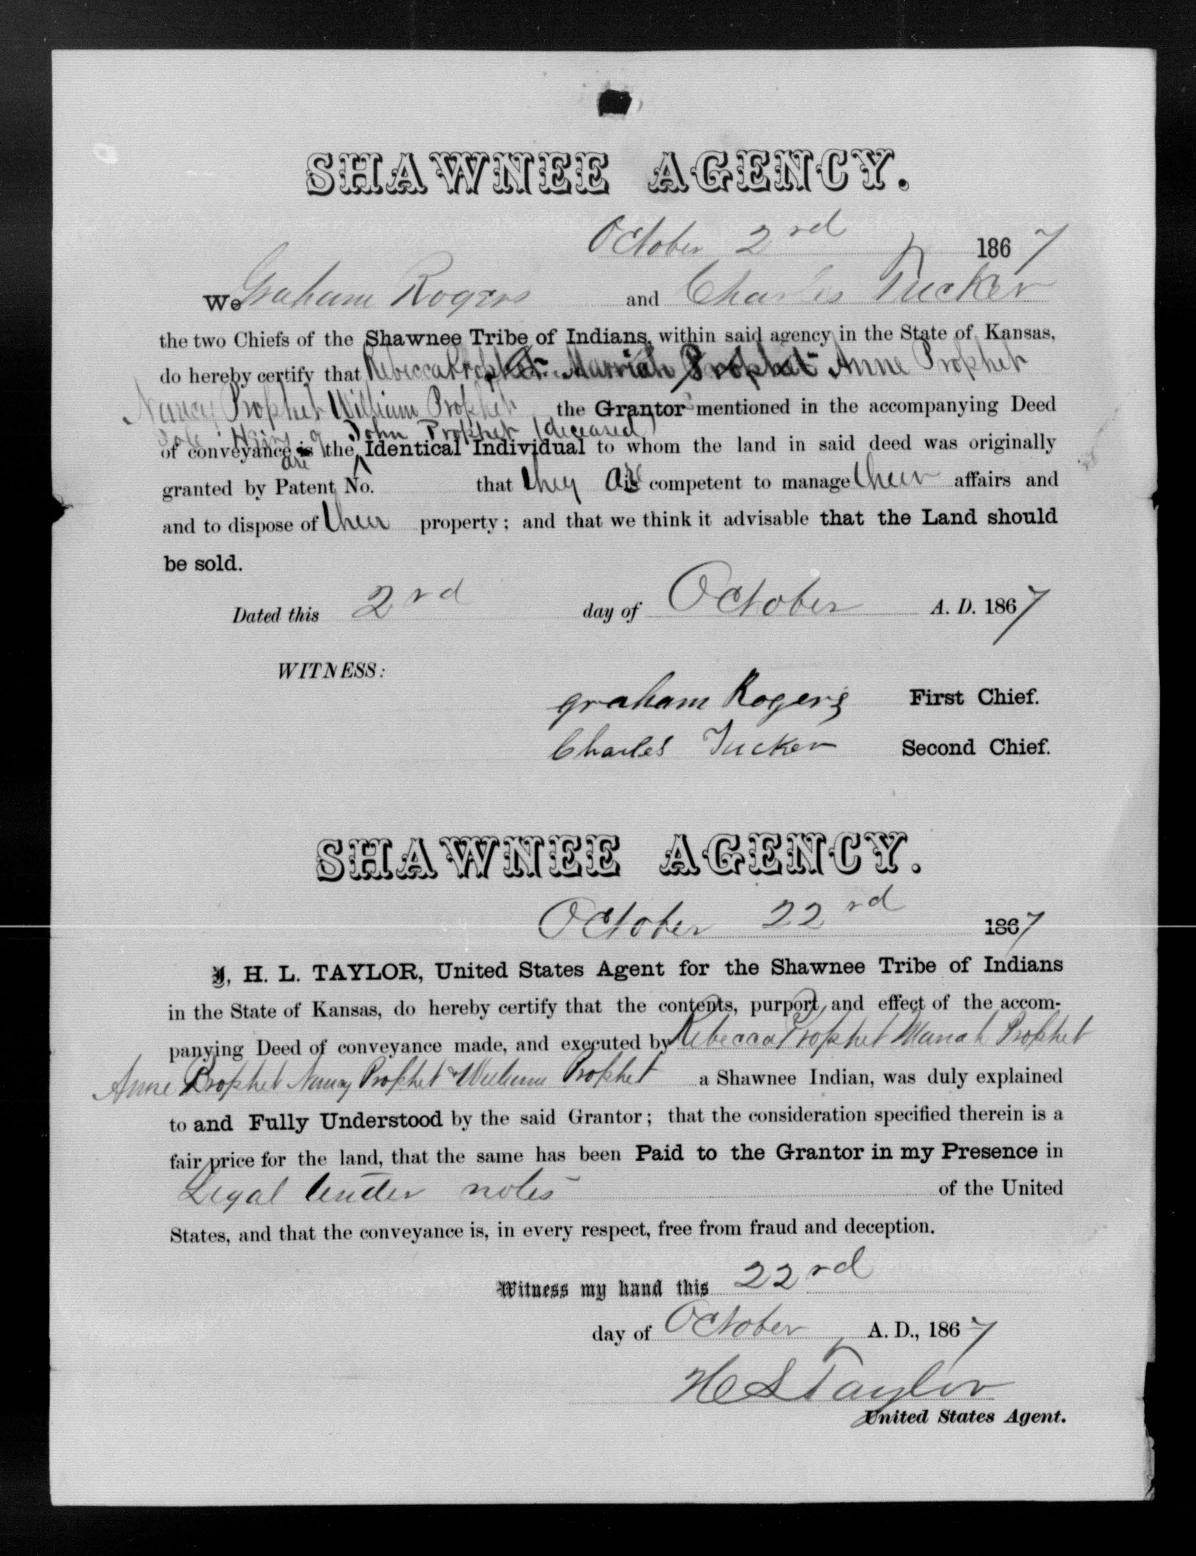 SHAWNEE AGENCY.
October 2rd 1867
We Graham Rogers and Charles Tucker
the two Chiefs of the Shawnee Tribe of Indians, within said agency in the State of Kansas,
do hereby certify that Rebecca Prophet Marriah Prophet Anne Prophet
Nancy Prophet William Prophet the Grantors mentioned in the accompanying Deed
Sole Heirs of John Prophet (deceased)
of conveyance are the Identical Individual to whom the land in said deed was originally
granted by Patent No. that they are competent to manage their affairs and
and to dispose of their property; and that we think it advisable that the Land should
be sold.
Dated this 2rd day of October A. D. 1867
WITNESS:
graham Rogers First Chief.
Charles Tucker Second Chief.
SHAWNEE AGENCY.
October 22rd 1867
I, H. L. TAYLOR, United States Agent for the Shawnee Tribe of Indians
in the State of Kansas, do hereby certify that the contents, purport and effect of the accom-
panying Deed of conveyance made, and executed by Rebecca Prophet Mariah Prophet
Anne Prophet Nancy Prophet & William Prophet a Shawnee Indian, was duly explained
to and Fully Understood by the said Grantor; that the consideration specified therein is a
fair price for the land, that the same has been Paid to the Grantor in my Presence in
Legal tender notes of the United
States, and that the conveyance is, in every respect, free from fraud and deception.
Witness my hand this 22rd
day of October A. D., 1867
H L Taylor
United States Agent.